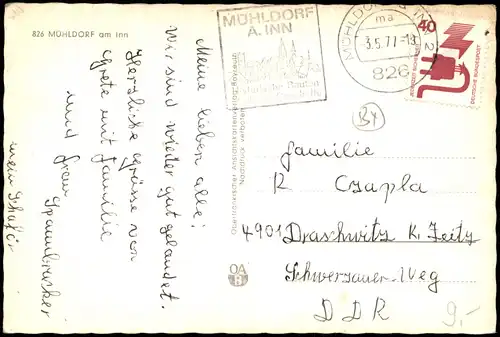 826 MÜHLDORF am Inn
Meine lieben alle!
Wir sind wieder gut gelandet.
Herzliche Grüsse von
Grete mit Familie
und Frau
mein
Oberfränkischer Ansichtskartenverlag, Bayreuth
Nachdruck verboten
OA
B
MÜHLDORF
A. INN
Historische Bauten
MÜHLDORF, INN
ma
-3.5.77-18
2
826
40
JEDERZEIT SICHERHEIT
DEUTSCHE BUNDESPOST
BY
Familie
R Czapla
4901 Draschwitz K. Zeitz
Schwerzauer Weg
DDR
9,-